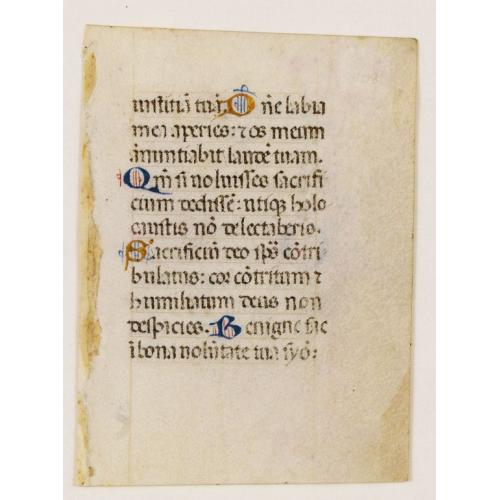 iustitiā tuā. Dñe labia
mea aperies: ⁊ os meum
ānuntiabit laudē tuam.
Qm̄ si uoluisses sacrifi
cium dedissē: utiq̄ holo
caustis nō delectaberis.
Sacrificiū deo sp̄s cōtri
bulatus: cor cōtritum ⁊
humiliatum deus non
despicies. Benigne fac
ī bona uolūtate tua syō: